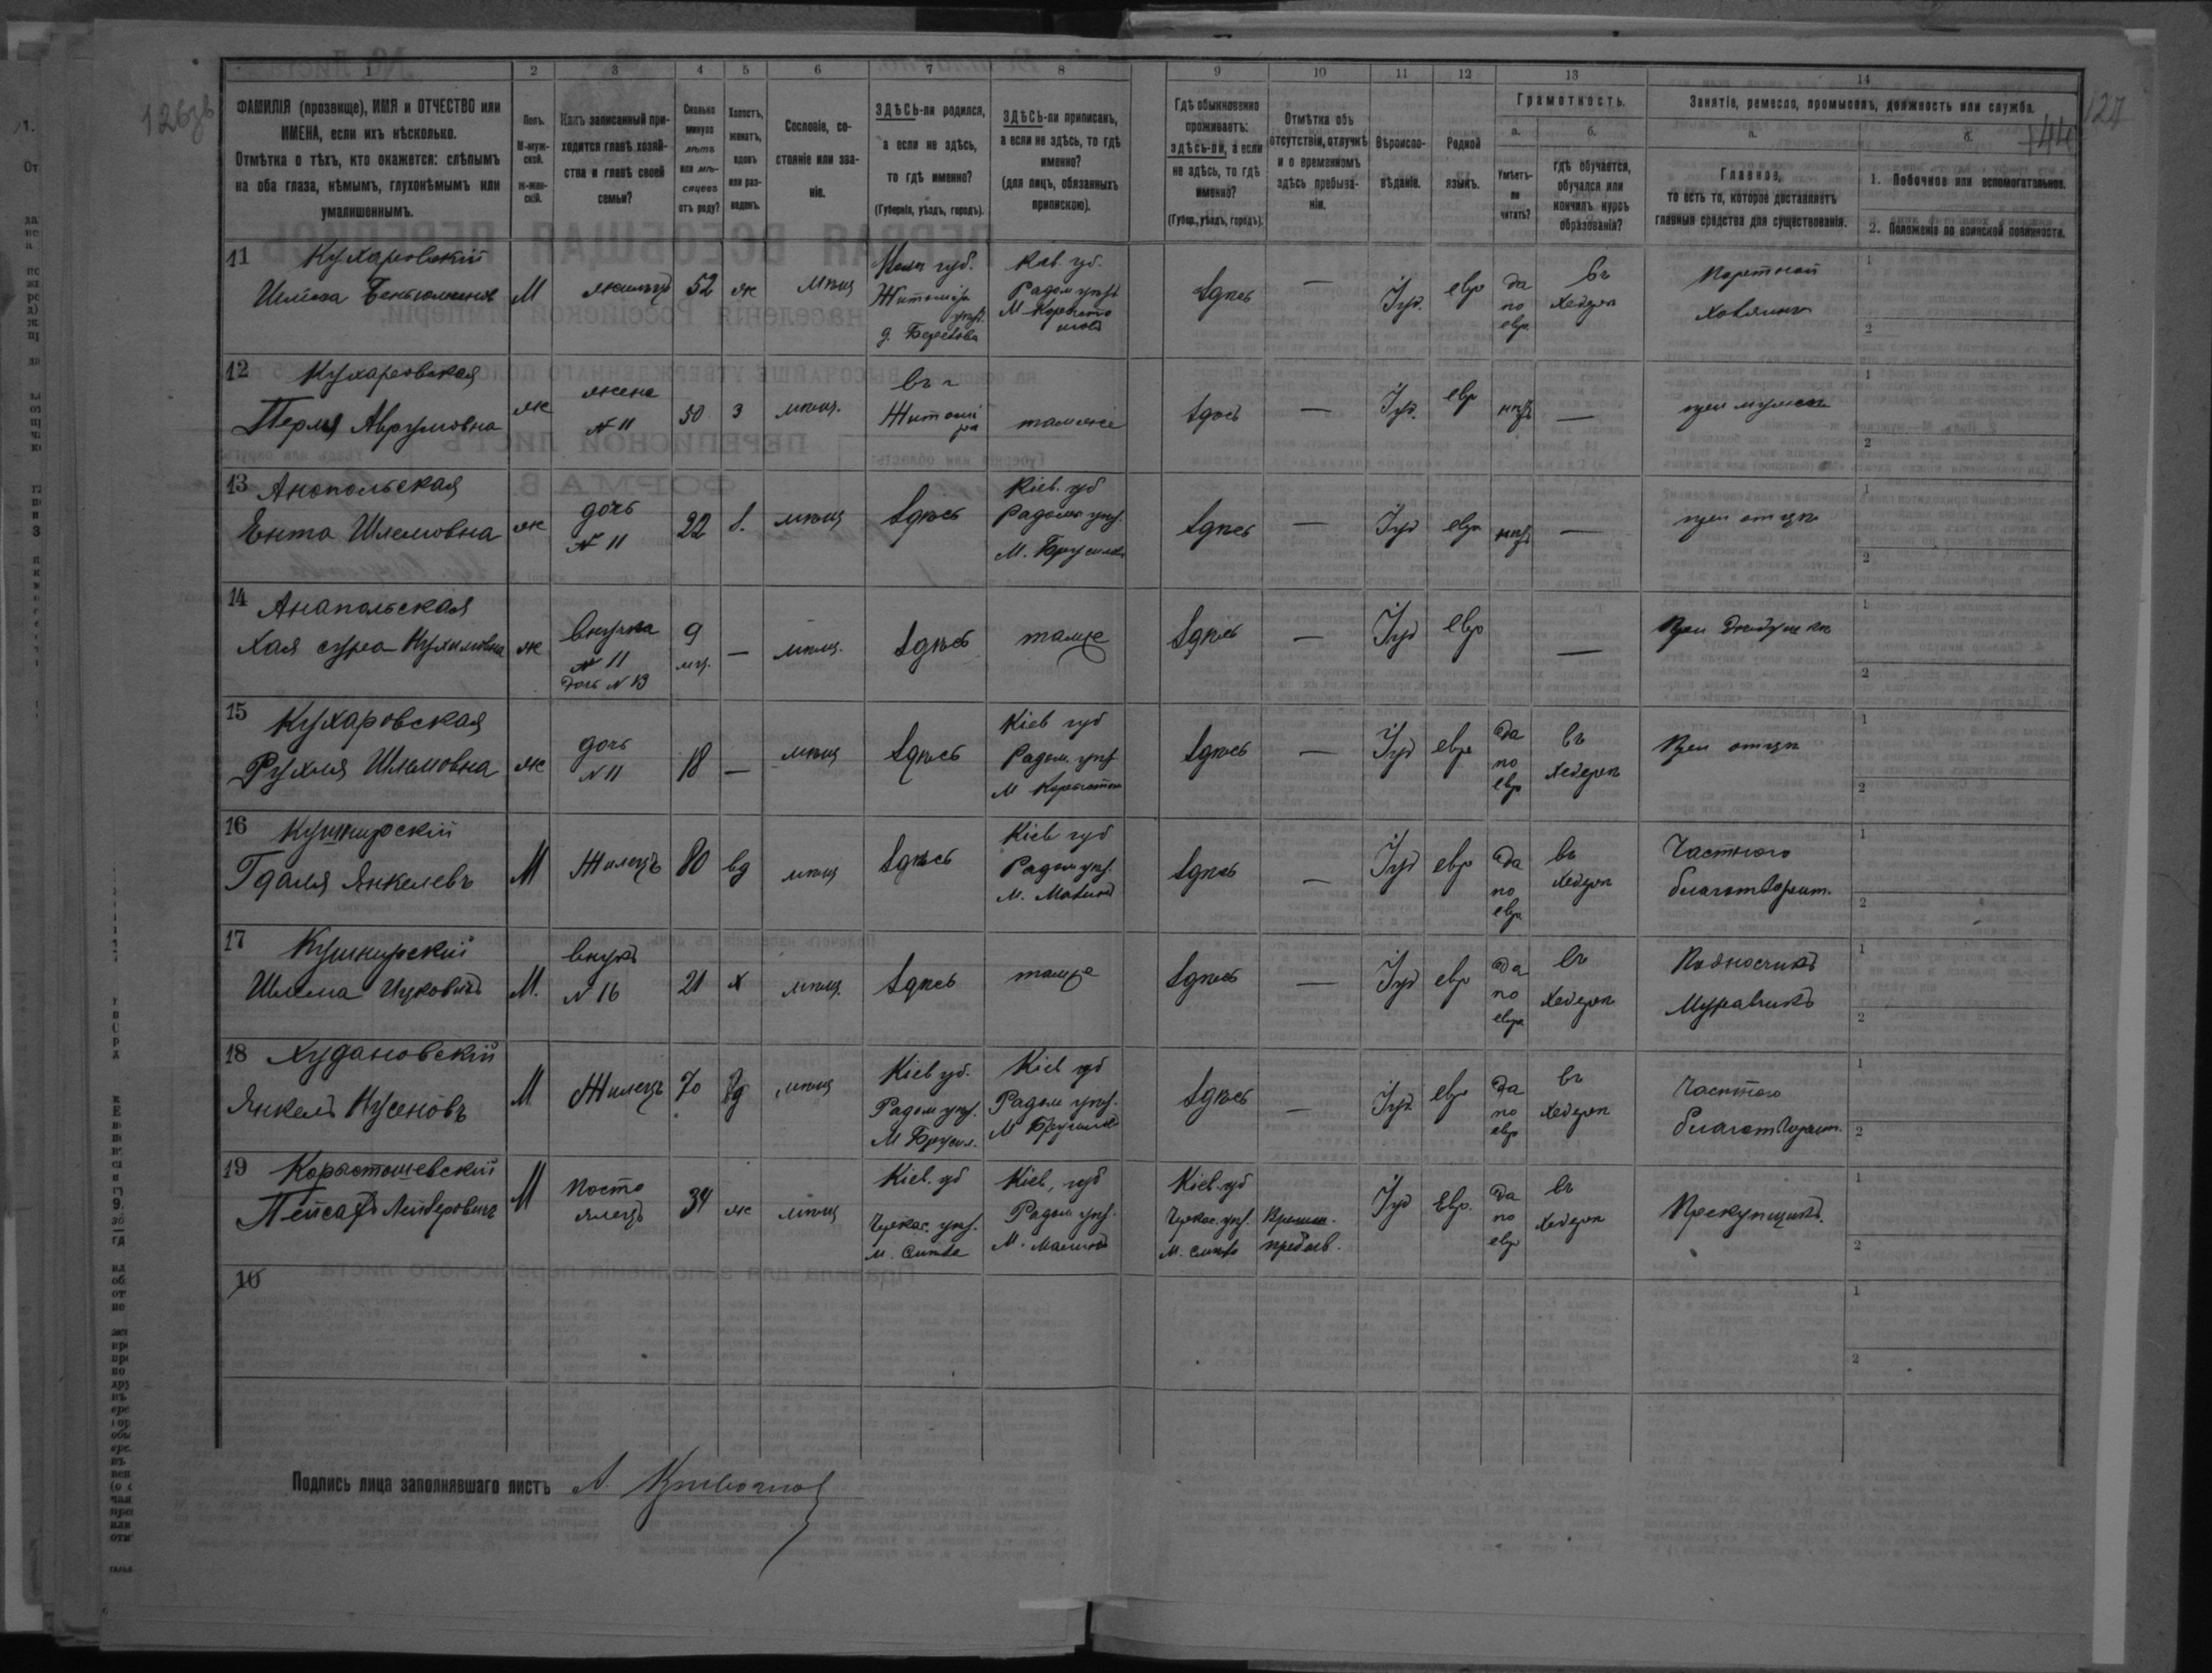 126об
127
144
1 2 3 4 5 6 7 8 9 10 11 12 13 14
ФАМИЛІЯ (прозвище), ИМЯ и ОТЧЕСТВО или
ИМЕНА, если ихъ нѣсколько.
Отмѣтка о тѣхъ, кто окажется: слѣпымъ
на оба глаза, нѣмымъ, глухонѣмымъ или
умалишеннымъ.
Полъ.
М-муж-
ской.
ж-жен-
скій.
Какъ записанный при-
ходится главѣ хозяй-
ства и главѣ своей
семьи?
Сколько
минуло
лѣтъ
или мѣ-
сяцевъ
отъ роду?
Холостъ,
женатъ,
вдовъ
или раз-
веденъ.
Сословіе, со-
стояніе или зва-
ніе.
ЗДѢСЬ-ли родился,
а если не здѣсь,
то гдѣ именно?
(Губернія, уѣздъ, городъ).
ЗДѢСЬ-ли приписанъ,
а если не здѣсь, то гдѣ
именно?
(для лицъ, обязанныхъ
припискою).
Гдѣ обыкновенно
проживаетъ:
здѣсь-ли, а если
не здѣсь, то гдѣ
именно?
(Губер., уѣздъ, городъ).
Отмѣтка объ
отсутствіи, отлучкѣ
и о временномъ
здѣсь пребыва-
ніи.
Вѣроиспо-
вѣданіе.
Родной
языкъ.
Грамотность.
а.
Умѣетъ-
ли
читать?
б.
гдѣ обучается,
обучался или
кончилъ курсъ
образованія?
Занятіе, ремесло, промыселъ, должность или служба.
а.
Главное,
то есть то, которое доставляетъ
главныя средства для существованія.
б.
1. Побочное или вспомогательное.
2. Положеніе по воинской повинности.
11 Кухаровскій
Шлема
М
жилецъ
52
ж
мѣщ
губ.
Житомір
уѣзд.
д.
Кіев. гу.
Радом уѣзд
М
Здѣсь
—
Іуд.
евр
да
по
евр.
въ
хедерѣ
Портной
хозяинъ
1
2
12 Кухаровская
Перля Аврумовна
ж
жена
№ 11
50
з
мѣщ.
въ г
Житомі
рѣ
тамже
Здѣсь
—
Іуд.
евр
нѣтъ
—
при мужѣ
1
2
13 Анопольская
Ента Шлемовна
ж
дочь
№ 11
22
з.
мѣщ
Здѣсь
Кіев. губ
Радом уѣз.
М. Брусилов
Здѣсь
—
Іуд
евр
нѣтъ
—
при отцѣ
1
2
14 Анапольская
Хая сура Нухимовна
ж
внучка
№ 11
дочь № 13
9
мц.
—
мѣщ.
Здѣсь
тамже
Здѣсь
—
Іуд
евр
—
При дѣдушкѣ
1
2
15 Кухаровская
Рухля Шламовна
ж
дочь
№ 11
18
—
мѣщ
Здѣсь
Кіев губ
Радом. уѣз
М
Здѣсь
—
Іуд
евр
да
по
евр
въ
хедерѣ
При отцѣ
1
2
16 Кушнирскій
Гдаля Янкелевъ
М
Жилецъ
80
вд
мѣщ
Здѣсь
Кіев губ
Радом уѣз.
М. Малинъ
Здѣсь
—
Іуд
евр
да
по
евр
въ
хедерѣ
Частного
благотворит.
1
2
17 Кушнирскій
Шлема Ицковичъ
М.
внукъ
№ 16
21
х
мѣщ.
Здѣсь
тамже
Здѣсь
—
Іуд
евр
да
по
евр
въ
хедерѣ
Подносчикъ
Муравчикъ
1
2
18 Худановскій
Янкелъ Нусеновъ
М
Жилецъ
70
вд
мѣщ
Кіев гу.
Радом уѣз.
М Брусил.
Кіев губ
Радом уѣз.
М Брусилов
Здѣсь
—
Іуд.
евр
да
по
евр
въ
хедерѣ
Частного
благотворит.
1
2
19 Коростошевскій
Пейсахъ Лейзеровичъ
М
Посто
ялецъ
34
ж
мѣщ
Кіев. губ
Черкас. уѣз.
м. Смѣла
Кіев, губ
Радом уѣз.
М. Малинъ
Кіев. губ
Черкас. уѣз.
М. Смѣла
Времен.
пребыв.
Іуд
Евр.
да
по
евр
въ
хедерѣ
Прекупщикъ.
1
2
10
1
2
Подпись лица заполнявшаго листъ